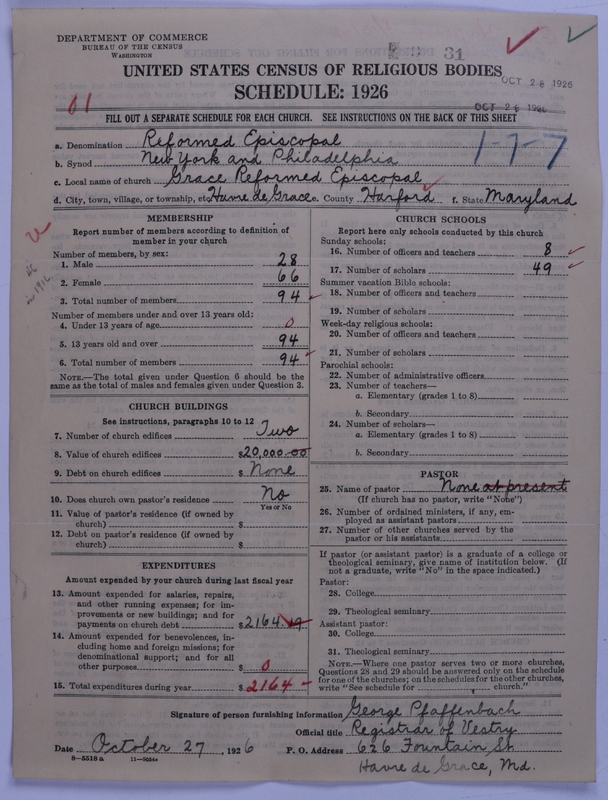 DEPARTMENT OF COMMERCE
BUREAU OF THE CENSUS
WASHINGTON
31
UNITED STATES CENSUS OF RELIGIOUS BODIES
OCT 28 1926
SCHEDULE: 1926
OCT 28 1926
01
FILL OUT A SEPARATE SCHEDULE FOR EACH CHURCH. SEE INSTRUCTIONS ON THE BACK OF THIS SHEET
a. Denomination Reformed Episcopal
1-7-7
b. Synod New York and Philadelphia
c. Local name of church Grace Reformed Episcopal
d. City, town, village, or township, etc Havre de Grace e. County Harford f. State Maryland
MEMBERSHIP
Report number of members according to definition of
member in your church
Number of members, by sex:
1. Male 28
2. Female 66
3. Total number of members 94
Number of members under and over 13 years old:
4. Under 13 years of age 0
5. 13 years old and over 94
6. Total number of members 94
NOTE.—The total given under Question 6 should be the
same as the total of males and females given under Question 3.
CHURCH BUILDINGS
See instructions, paragraphs 10 to 12
7. Number of church edifices Two
8. Value of church edifices $20,000.00
9. Debt on church edifices $ None
10. Does church own pastor's residence No
Yes or No
11. Value of pastor's residence (if owned by
church) $
12. Debt on pastor's residence (if owned by
church) $
EXPENDITURES
Amount expended by your church during last fiscal year
13. Amount expended for salaries, repairs,
and other running expenses; for im-
provements or new buildings; and for
payments on church debt $2164.19
14. Amount expended for benevolences, in-
cluding home and foreign missions; for
denominational support; and for all
other purposes $ 0
15. Total expenditures during year $ 2164
CHURCH SCHOOLS
Report here only schools conducted by this church
Sunday schools:
16. Number of officers and teachers 8
17. Number of scholars 49
Summer vacation Bible schools:
18. Number of officers and teachers
19. Number of scholars
Week-day religious schools:
20. Number of officers and teachers
21. Number of scholars
Parochial schools:
22. Number of administrative officers
23. Number of teachers—
a. Elementary (grades 1 to 8)
b. Secondary
24. Number of scholars—
a. Elementary (grades 1 to 8)
b. Secondary
PASTOR
25. Name of pastor None at present
(If church has no pastor, write "None")
26. Number of ordained ministers, if any, em-
ployed as assistant pastors
27. Number of other churches served by the
pastor or his assistants
If pastor (or assistant pastor) is a graduate of a college or
theological seminary, give name of institution below. (If
not a graduate, write "No" in the space indicated.)
Pastor:
28. College
29. Theological seminary
Assistant pastor:
30. College
31. Theological seminary
NOTE.—Where one pastor serves two or more churches,
Questions 28 and 29 should be answered only on the schedule
for one of the churches; on the schedules for the other churches,
write "See schedule for , church."
Signature of person furnishing information George Pfaffenbach
Official title Registrar of Vestry
Date October 27, 1926 P. O. Address 626 Fountain St
8—5518a 11—9034a
Havre de Grace, Md.